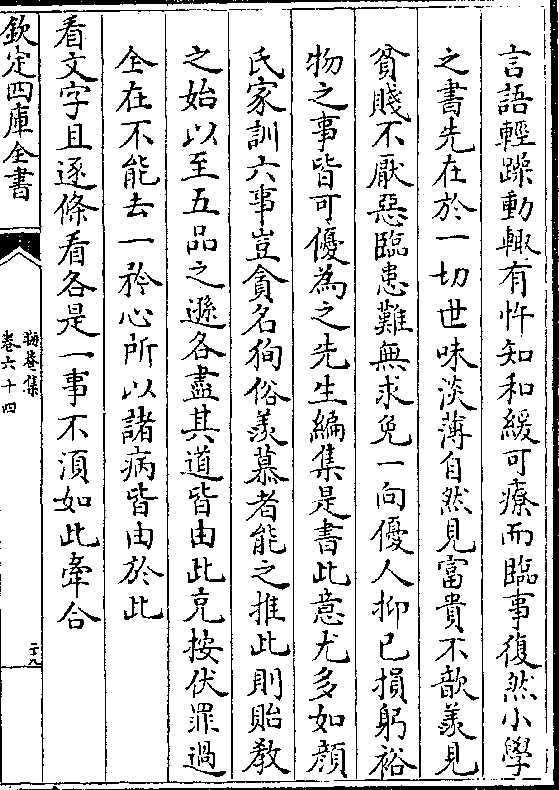 言語輕躁動輙有忤知和緩可療而臨事復然小學
之書先在於一切世味淡薄自然見富貴不歆羨見
貧賤不厭惡臨患難無求免一向優人抑已損躬裕
物之事皆可優為之先生編集是書此意尤多如顔
氏家訓六事豈貪名狥俗羨慕者能之推此則貽教
之始以至五品之遜各盡其道皆由此克按伏罪過
全在不能去一矜心所以諸病皆由於此
看文字且逐條看各是一事不須如此牽合
欽定四庫全書
晦菴集
卷六十四
二十九